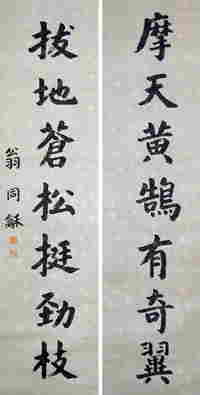 摩天黄鵠有奇翼
拔地蒼松挺勁枝
翁同龢